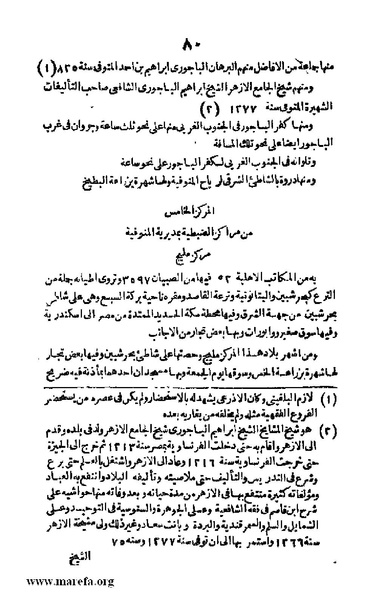 ٨٠
منها جماعة من الافاضل منهم البرهان الباجوري ابراهيم بن احمد المتوفى سنة ٨٢٥ (١)
ومنهم شيخ الجامع الازهر الشيخ ابراهيم الباجوري الشافعي صاحب التأليفات
الشهيرة المتوفى سنة ١٢٧٧ (٢)
ومنها كفر الباجور في الجنوب الغربي منها على نحو ثلث ساعة وجروان في غرب
الباجور ايضا على نحو تلك المسافة
وتلوانه في الجنوب الغربي لكفر الباجور على نحو ساعة
ومنها دروة بالشاطئ الشرقي لرياح المنوفية ولها شهرة بزراعة البطيخ
المركز الخامس
من مراكز الضبطية بمديرية المنوفية
مركز مليج
به من المكاتب الاهلية ٥٢ فيها من الصبيان ٣٥٩٧ وتروى اطيانه جملة من
الترع كبحر شبين والبتانونية وترعة القاصد ومقره ناحية بركة السبع وهي على شاطئ
بحر شبين من جهة الشرق وفيها محطة سكة الحديد الممتدة من مصر الى اسكندرية
وفيها سوق صغير ووابورات وبها بعض تجار من الاجانب
ومن اشهر بلاد هذا المركز مليج وحصتها على شاطئ بحر شبين وفيها بعض تجار
لها شهرة بزراعة الخس وسوقها يوم الجمعة وبها مسجدان احدهما بمأذنة فيه ضريح
(١) لازم البلقيني وكان الاذرعي يشهد له بالاستحضار ولم يكن في عصره من يستحضر
الفروع الفقهية مثله ولم يخلف من يقاربه بعده
(٢) هو شيخ المشايخ الشيخ ابراهيم الباجوري شيخ الجامع الازهر ولد في بلده وقدم
الى الازهر واقام به حتى دخلت الفرنساوية بمصر سنة ١٢١٣ ثم خرج الى الجيزة
حتى خرجت الفرنساوية سنة ١٢١٦ وعاد الى الازهر واشتغل بالعلم حتى برع
وشرع في التدريس والتأليف حتى ملا صيته وتأليفه البلاد وانتفع به العباد
ومؤلفاته كثيرة منتفع بها في الازهر من مدة حياته وبعد وفاته منها حواشيه على
شرح ابن قاسم في فقه الشافعية وعلى الجوهرة والسنوسية في التوحيد وعلى
الشمايل والسلم والسمرقندية والبردة وبانت سعاد وغير ذلك ولى مشيخة الازهر
سنة ١٢٦٦ واستمر بها الى ان توفى سنة ١٢٧٧ وسنه ٧٥
الشيخ
www.marefa.org